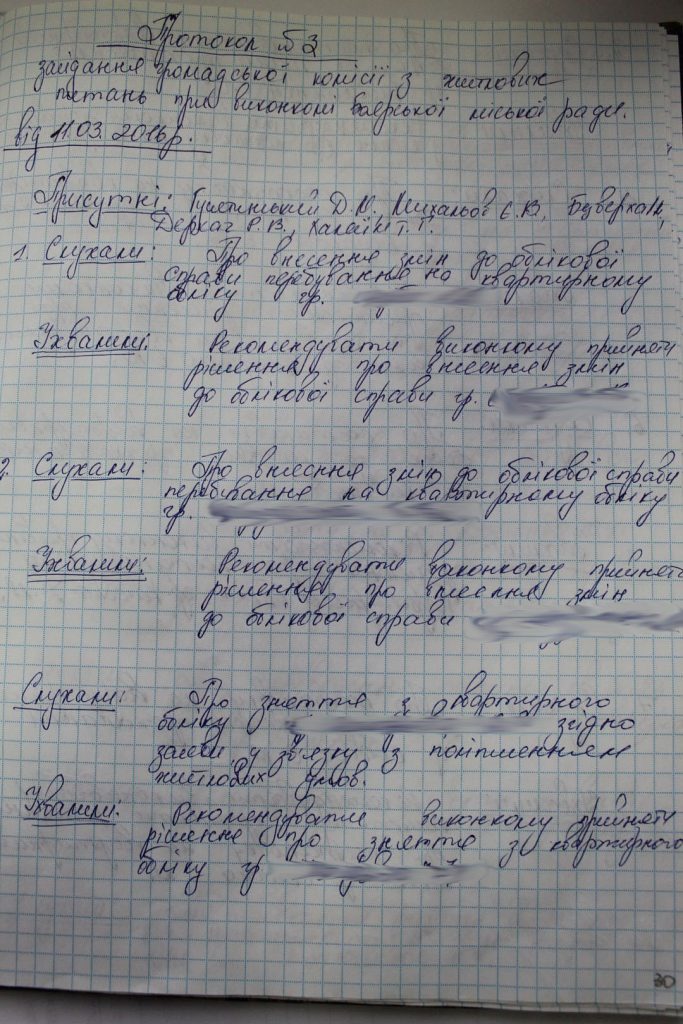 Протокол №3
засідання громадської комісії з житлових
питань при виконкомі Боярської міської ради.
від 11.03.2016р.
Присутні: Д.М., Є.В.,
Деркач Р.В., Т.Г.
1. Слухали: Про внесення змін до облікової
справи перебування на квартирному
обліку гр.
Ухвалили: Рекомендувати виконкому прийняти
рішення про внесення змін
до облікової справи гр.
2. Слухали: Про внесення змін до облікової справи
перебування на квартирному обліку
гр.
Ухвалили: Рекомендувати виконкому прийняти
рішення про внесення змін
до облікової справи
Слухали: Про зняття з квартирного
обліку згідно
заяви у зв'язку з поліпшенням
житлових умов.
Ухвалили: Рекомендувати виконкому прийняти
рішення про зняття з квартирного
обліку гр
30